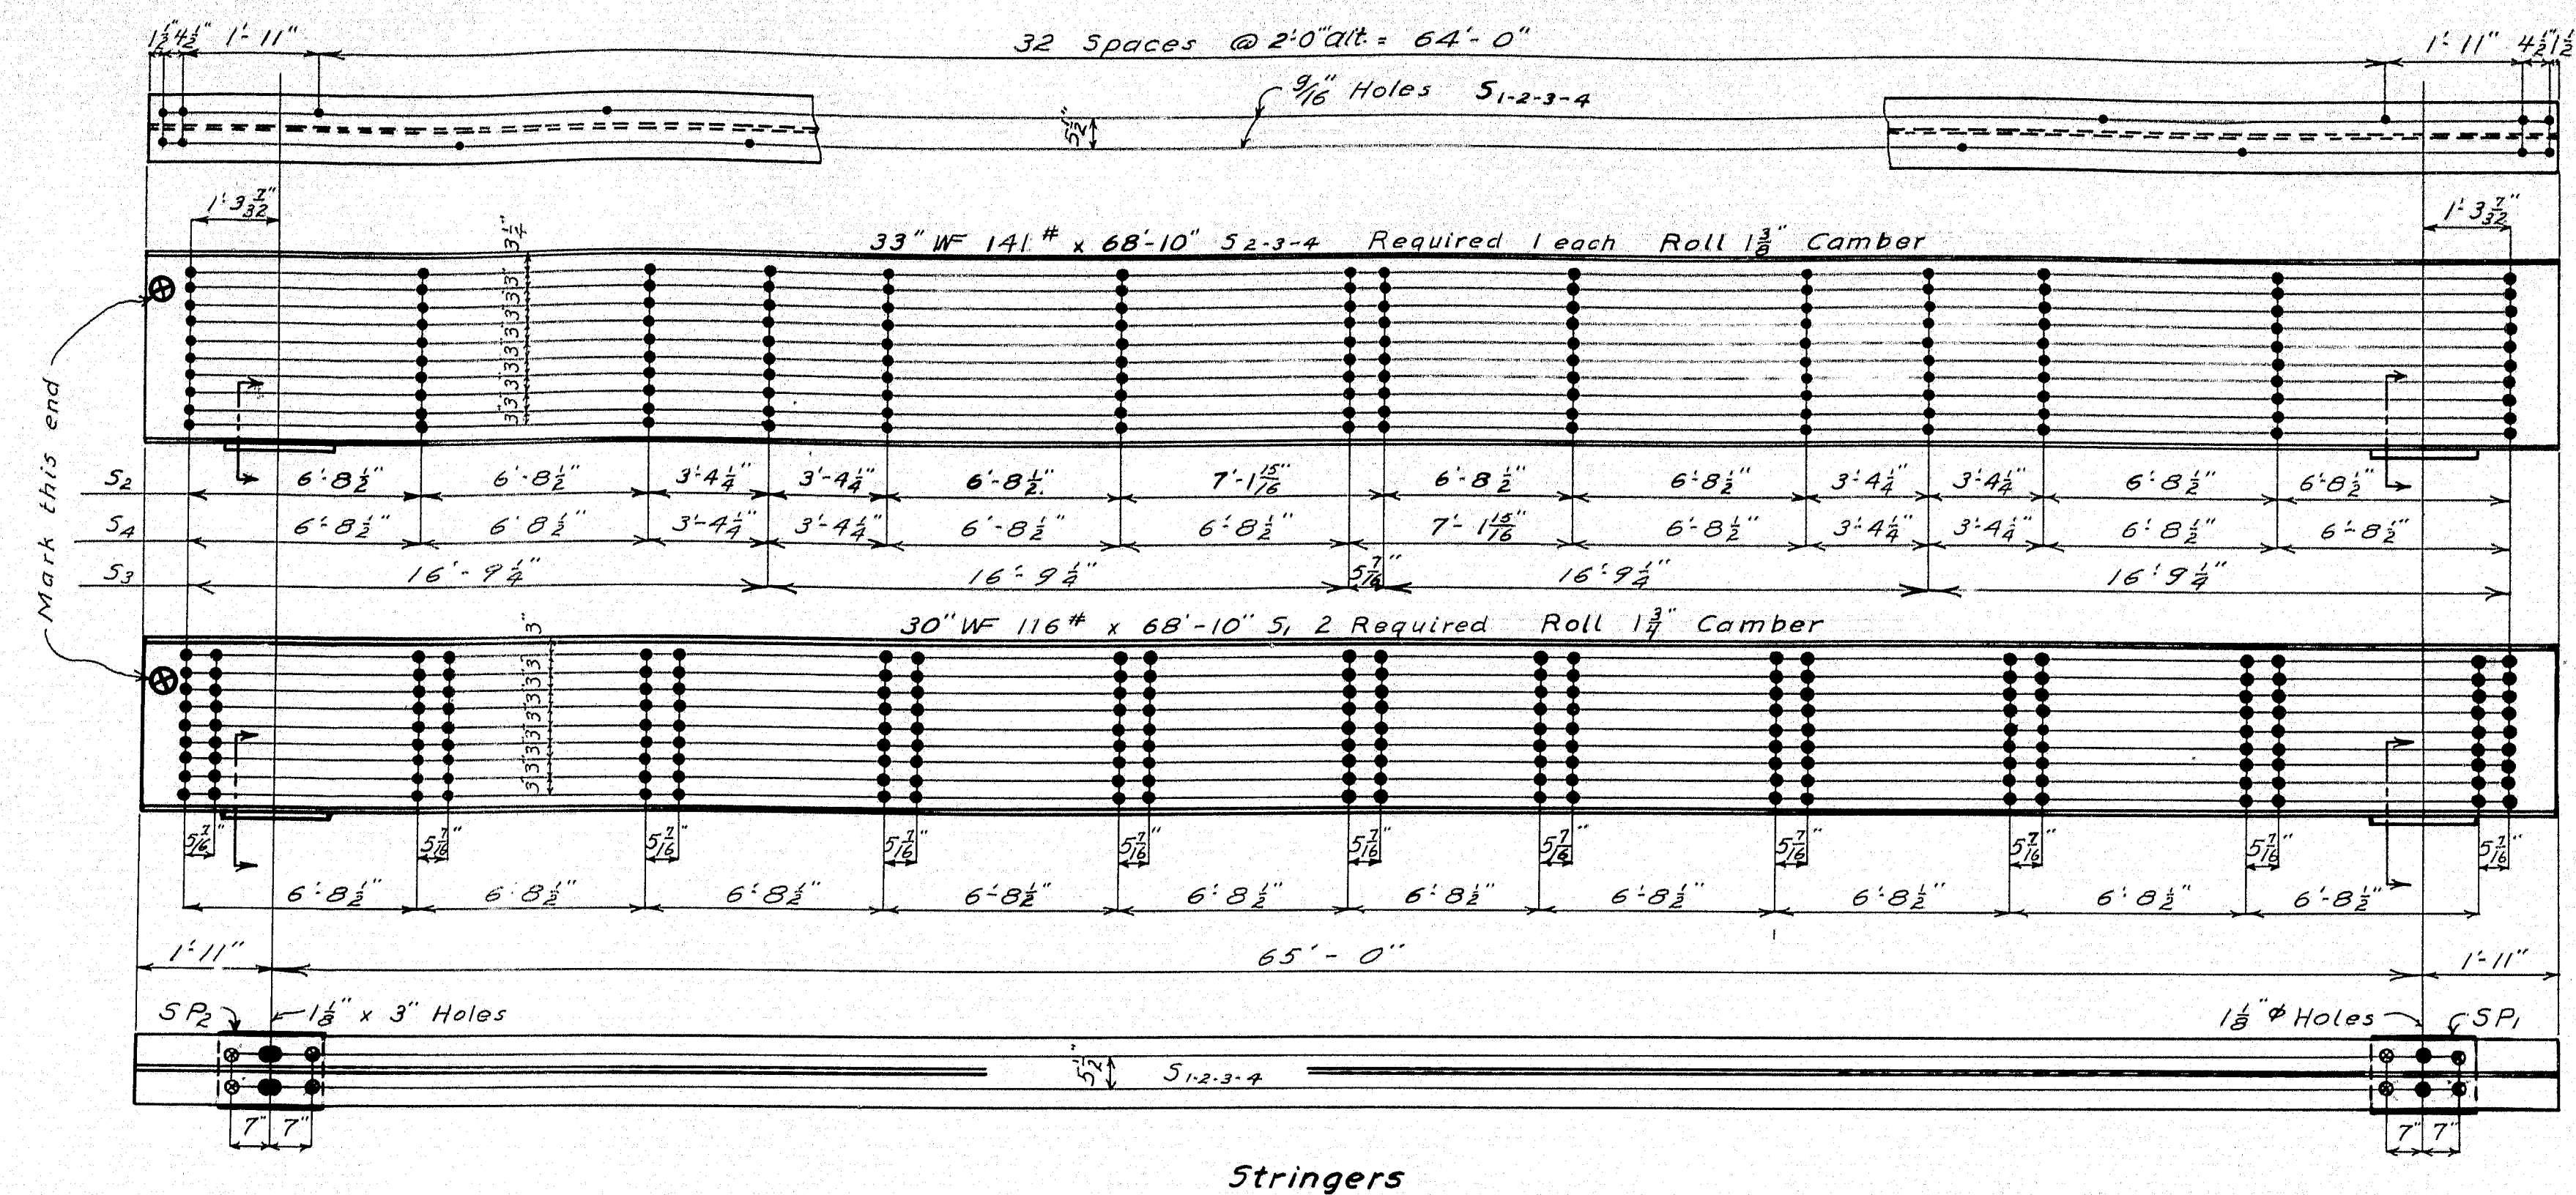 1½" 4½" 1'-11" 32 Spaces @ 2'-0" alt. = 64'-0" 1'-11" 4½" 1½
9/16" Holes S1-2-3-4
5½"
1'-3 7/32" 1'-3 7/32"
33" WF 141# x 68'-10" S2-3-4 Required 1 each Roll 1⅜" Camber
3¼"
3" 3" 3" 3" 3" 3" 3" 3" 3"
Mark this end
S2 6'-8½" 6'-8½" 3'-4¼" 3'-4¼" 6'-8½" 7'-1 15/16" 6'-8½" 6'-8½" 3'-4¼" 3'-4¼" 6'-8½" 6'-8½"
S4 6'-8½" 6'8½" 3'-4¼" 3'-4¼" 6'-8½" 6'-8½" 7'-1 15/16" 6'-8½" 3'-4¼" 3'-4¼" 6'-8½" 6'-8½"
S3 16'-9¼" 16'-9¼" 5 7/16" 16'-9¼" 16'-9¼"
30" WF 116# x 68'-10" S1 2 Required Roll 1¾" Camber
3"
3" 3" 3" 3" 3" 3" 3" 3"
5 7/16" 5 7/16" 5 7/16" 5 7/16" 5 7/16" 5 7/16" 5 7/16" 5 7/16" 5 7/16" 5 7/16" 5 7/16"
6'-8½" 6'-8½" 6'-8½" 6'-8½" 6'-8½" 6'-8½" 6'-8½" 6'-8½" 6'-8½" 6'-8½"
1'-11" 65'-0" 1'-11"
SP2 1⅛" x 3" Holes 1⅛" ø Holes SP1
5½" S1-2-3-4
7" 7" 7" 7"
Stringers